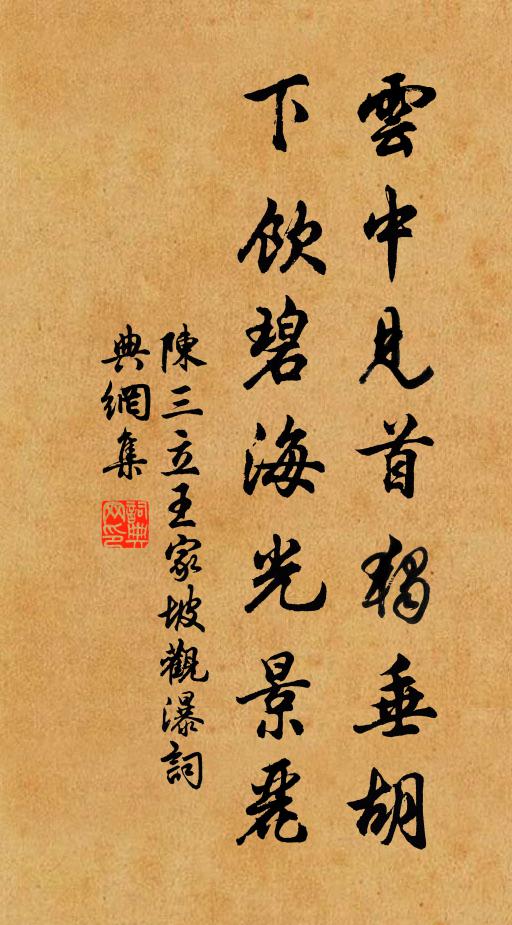 雲中見首獨垂胡
下飲碧海光景麗
陳三立王家坡觀瀑詞
典網集
詞典網印